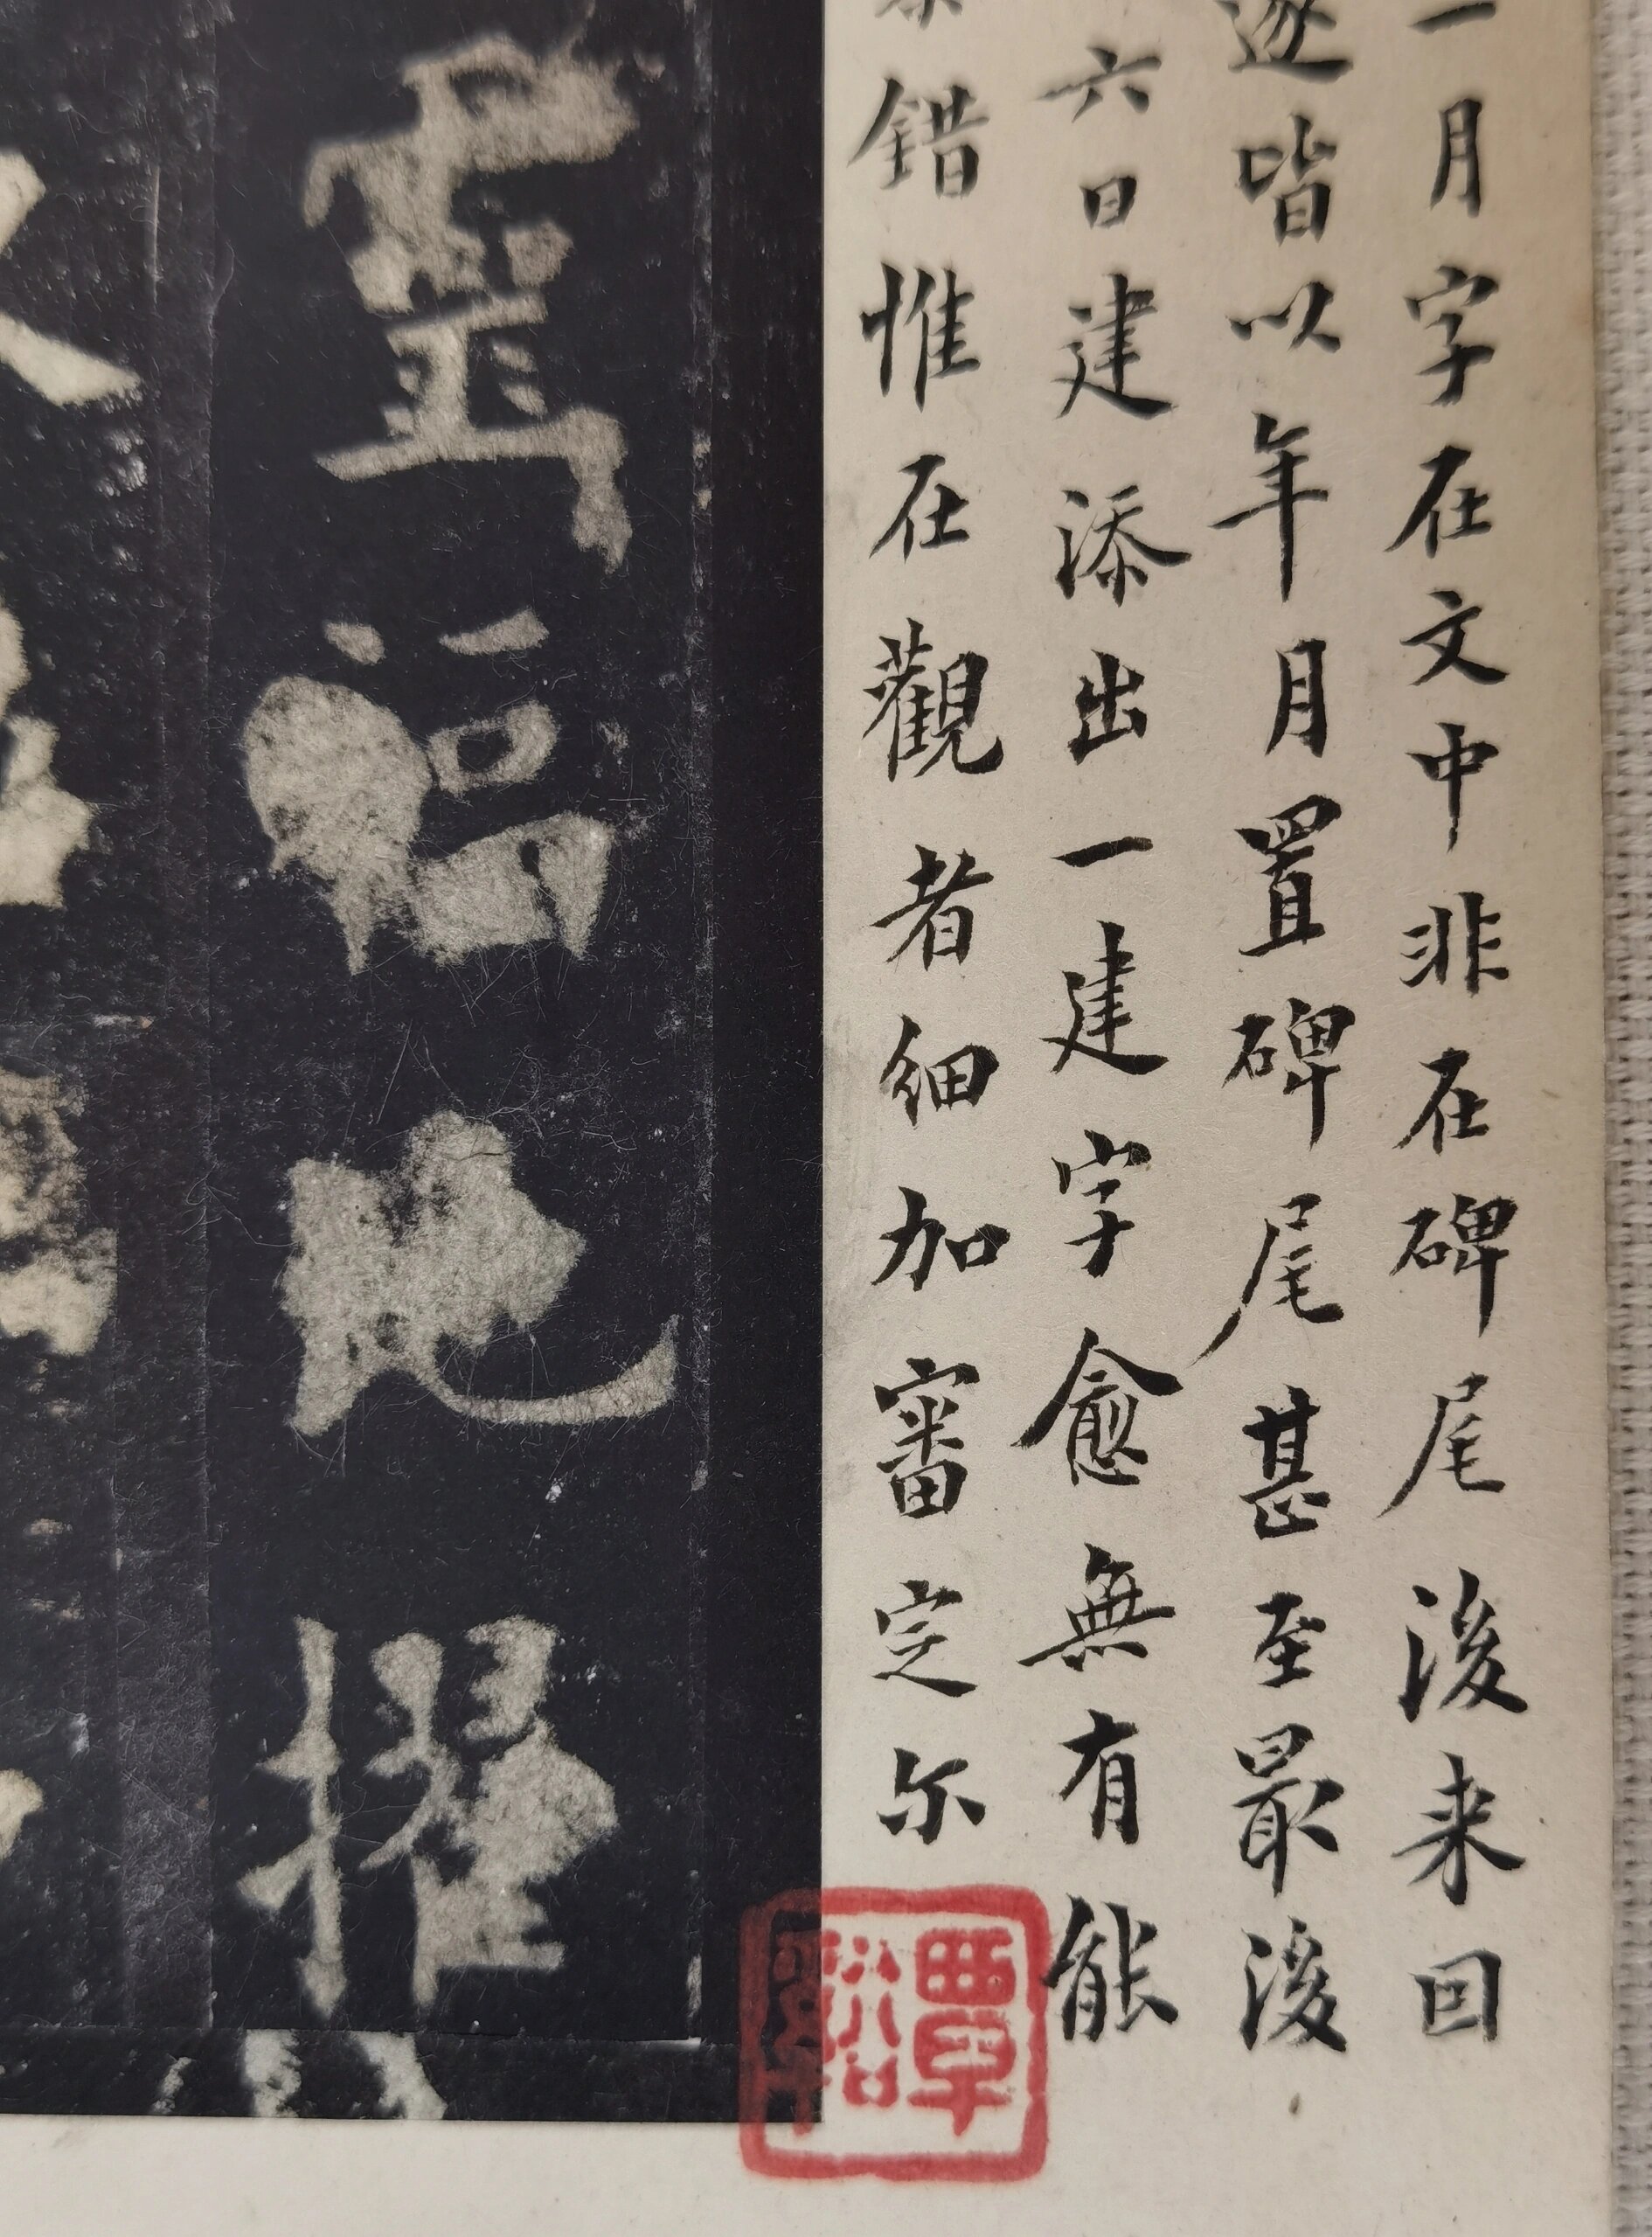 一月字在文中非在碑尾後来回
逐皆以年月置碑尾甚至最後
六日建添出一建字愈無有能
錯惟在觀者細加審定尔
靈福地擢
覃谿